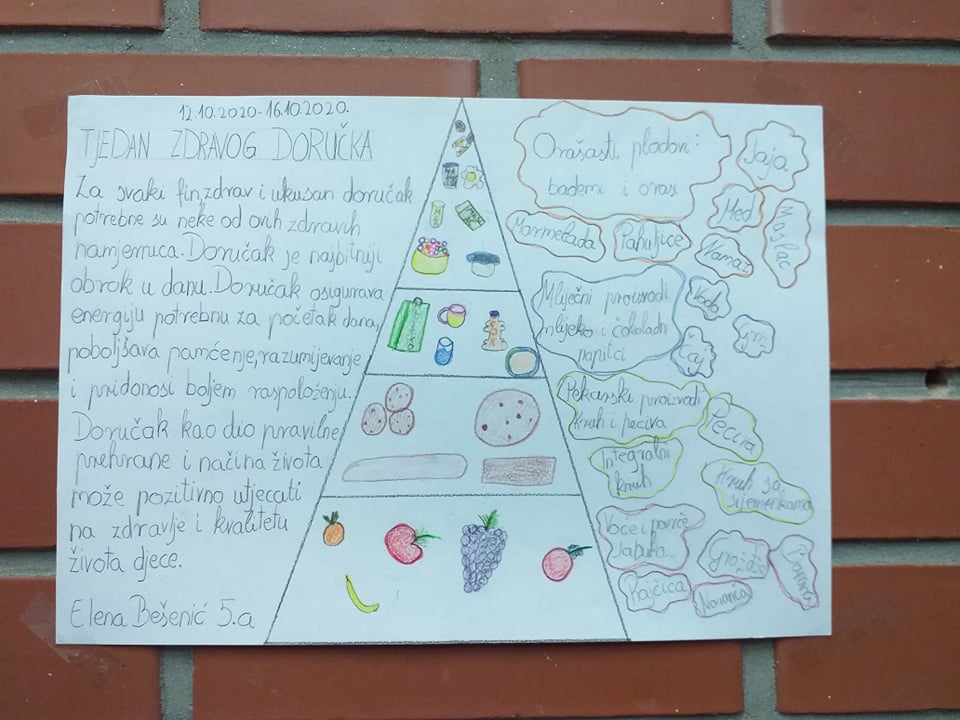 12.10.2020-16.10.2020.
TJEDAN ZDRAVOG DORUČKA
Za svaki fin, zdrav i ukusan doručak
potrebne su neke od ovih zdravih
namjernica. Doručak je najbitniji
obrok u danu. Doručak osigurava
energiju potrebnu za početak dana,
poboljšava pamćenje, razumijevanje
i pridonosi boljem raspoloženju.
Doručak kao dio pravilne
prehrane i načina života
može pozitivno utjecati
na zdravlje i kvalitetu
života djece.
Elena Bešenić 5.a
Orašasti plodovi:
bademi i orasi
Jaja
Med
Maslac
Marmelada
Pahuljice
Namaz
Mliječni proizvodi
mlijeko i čokoladni
napitci
Voda
Čaj
Pekarski proizvodi
kruh i peciva
Peciva
Integralni
kruh
Kruh sa
sjemenkama
Voće i povrće
Jabuka...
Grožđe
Banana
Rajčica
Naranča